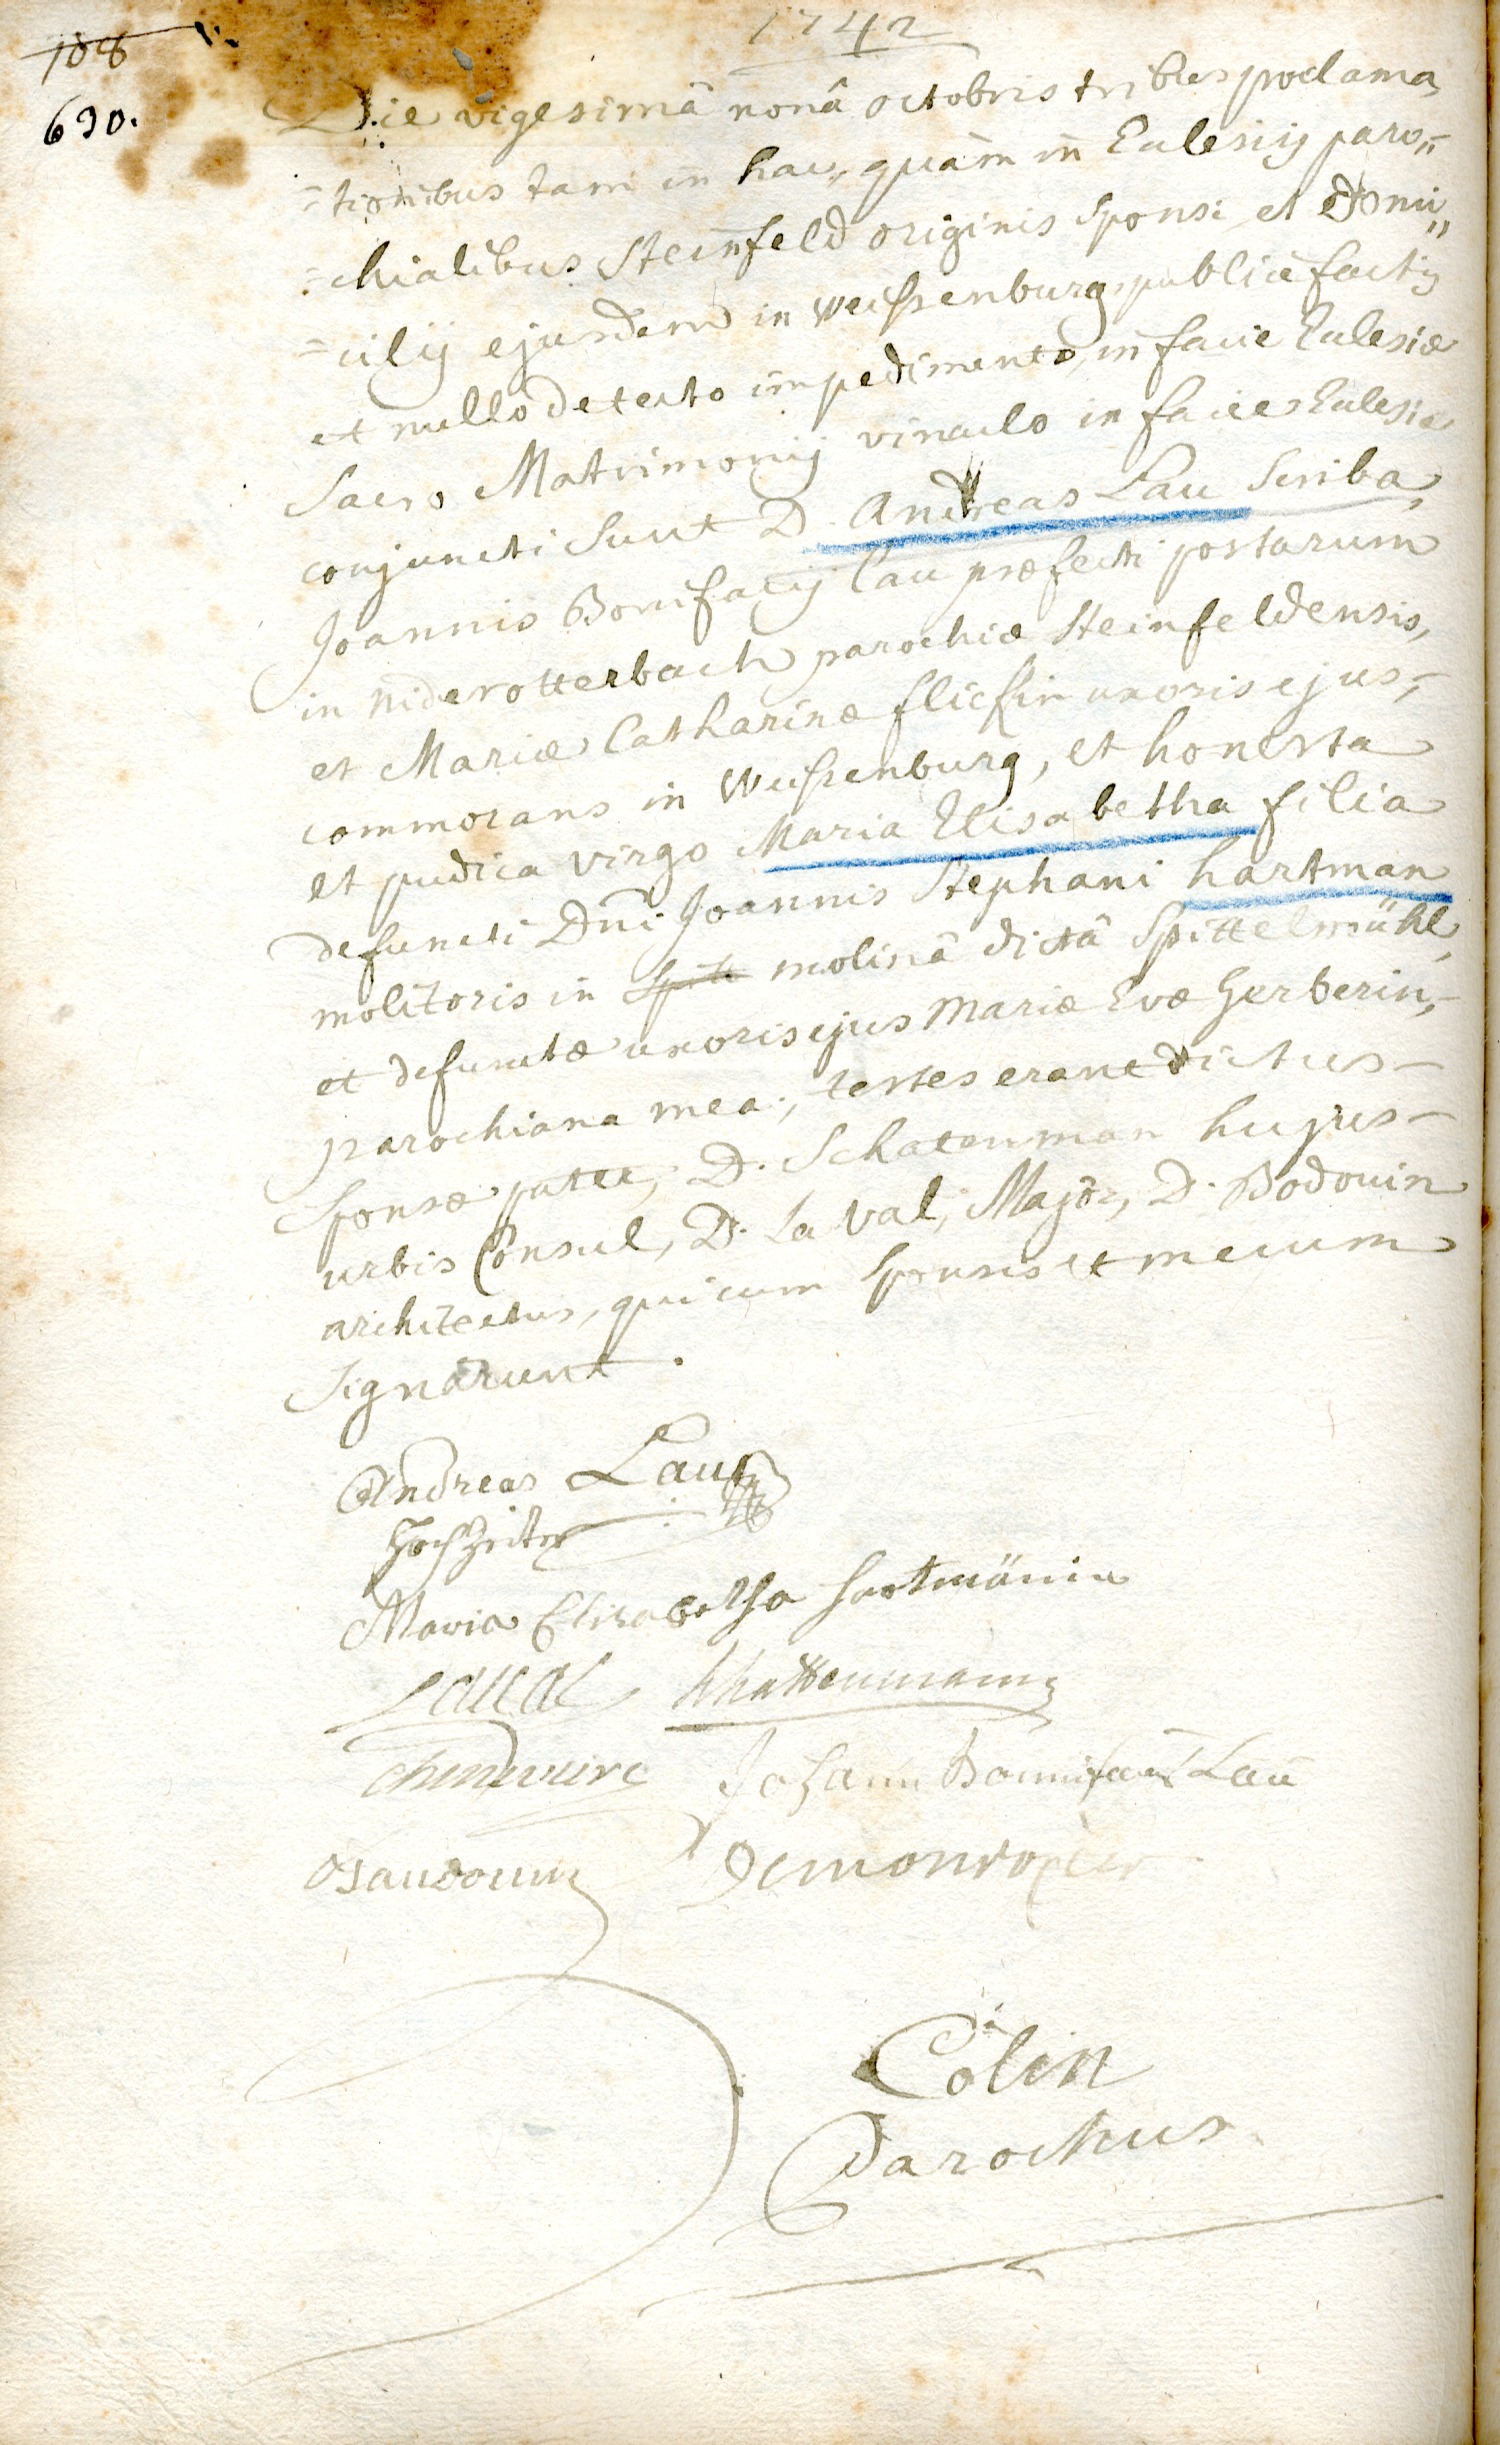 1742
108
690.
Die vigesimâ nonâ octobris tribus proclama,
=tionibus tam in hac, quàm in Eclesiis paro,,
=chialibus Steinfeld originis Sponsi et Domi,,
=cilij ejusdem in Weissenburg publicè factis
et nullo detecto impedimento, in facie Eclesiæ
Sacro Matrimonij vinculo in facie Eclesiæ
conjuncti Sunt D. Andreas Lau Scriba,
Joannis Bonifacij Lau præfecti portarum
in Niderotterbach parochiæ Steinfeldensis,
et Mariæ Catharinæ flickin uxoris ejus,
commorans in Weissenburg, et honesta
et pudica virgo Maria Elisabetha filia
defuncti Dni Joannis Stephani hartman
molitoris in Spite molinâ dictâ Spittelmühl,
et defunctæ uxoris ejus Mariæ Evæ Gerberin,
parochiana mea, testes erant dictus
Sponsæ pater, D. Schatenman hujus
urbis Consul, D. La Val, Major, D. Bodouin
architectus, qui cum Sponsis et mecum
Signarunt.
Andreas Lau
Hochzeiter
Maria Elisabetha Hartmänin
Laval Schattenmann
Johann Bonnifaci Lau
Baudouin
Colin
Parochus